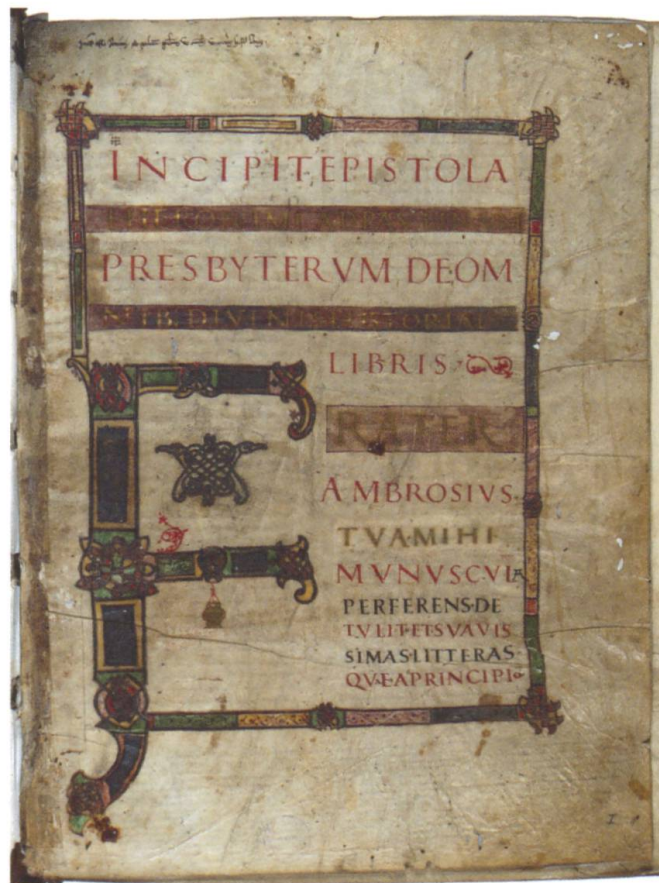 INCIPIT EPISTOLA
PRESBYTERVM, DE OM
NIB. DIVIN
LIBRIS
FRATER
AMBROSIVS.
TVA.MIHI
MVNVSCVLA
PERFERENS.DE
TVLIT.ETSVAVIS
SIMAS.LITTERAS.
QVAEAPRINCIPIO